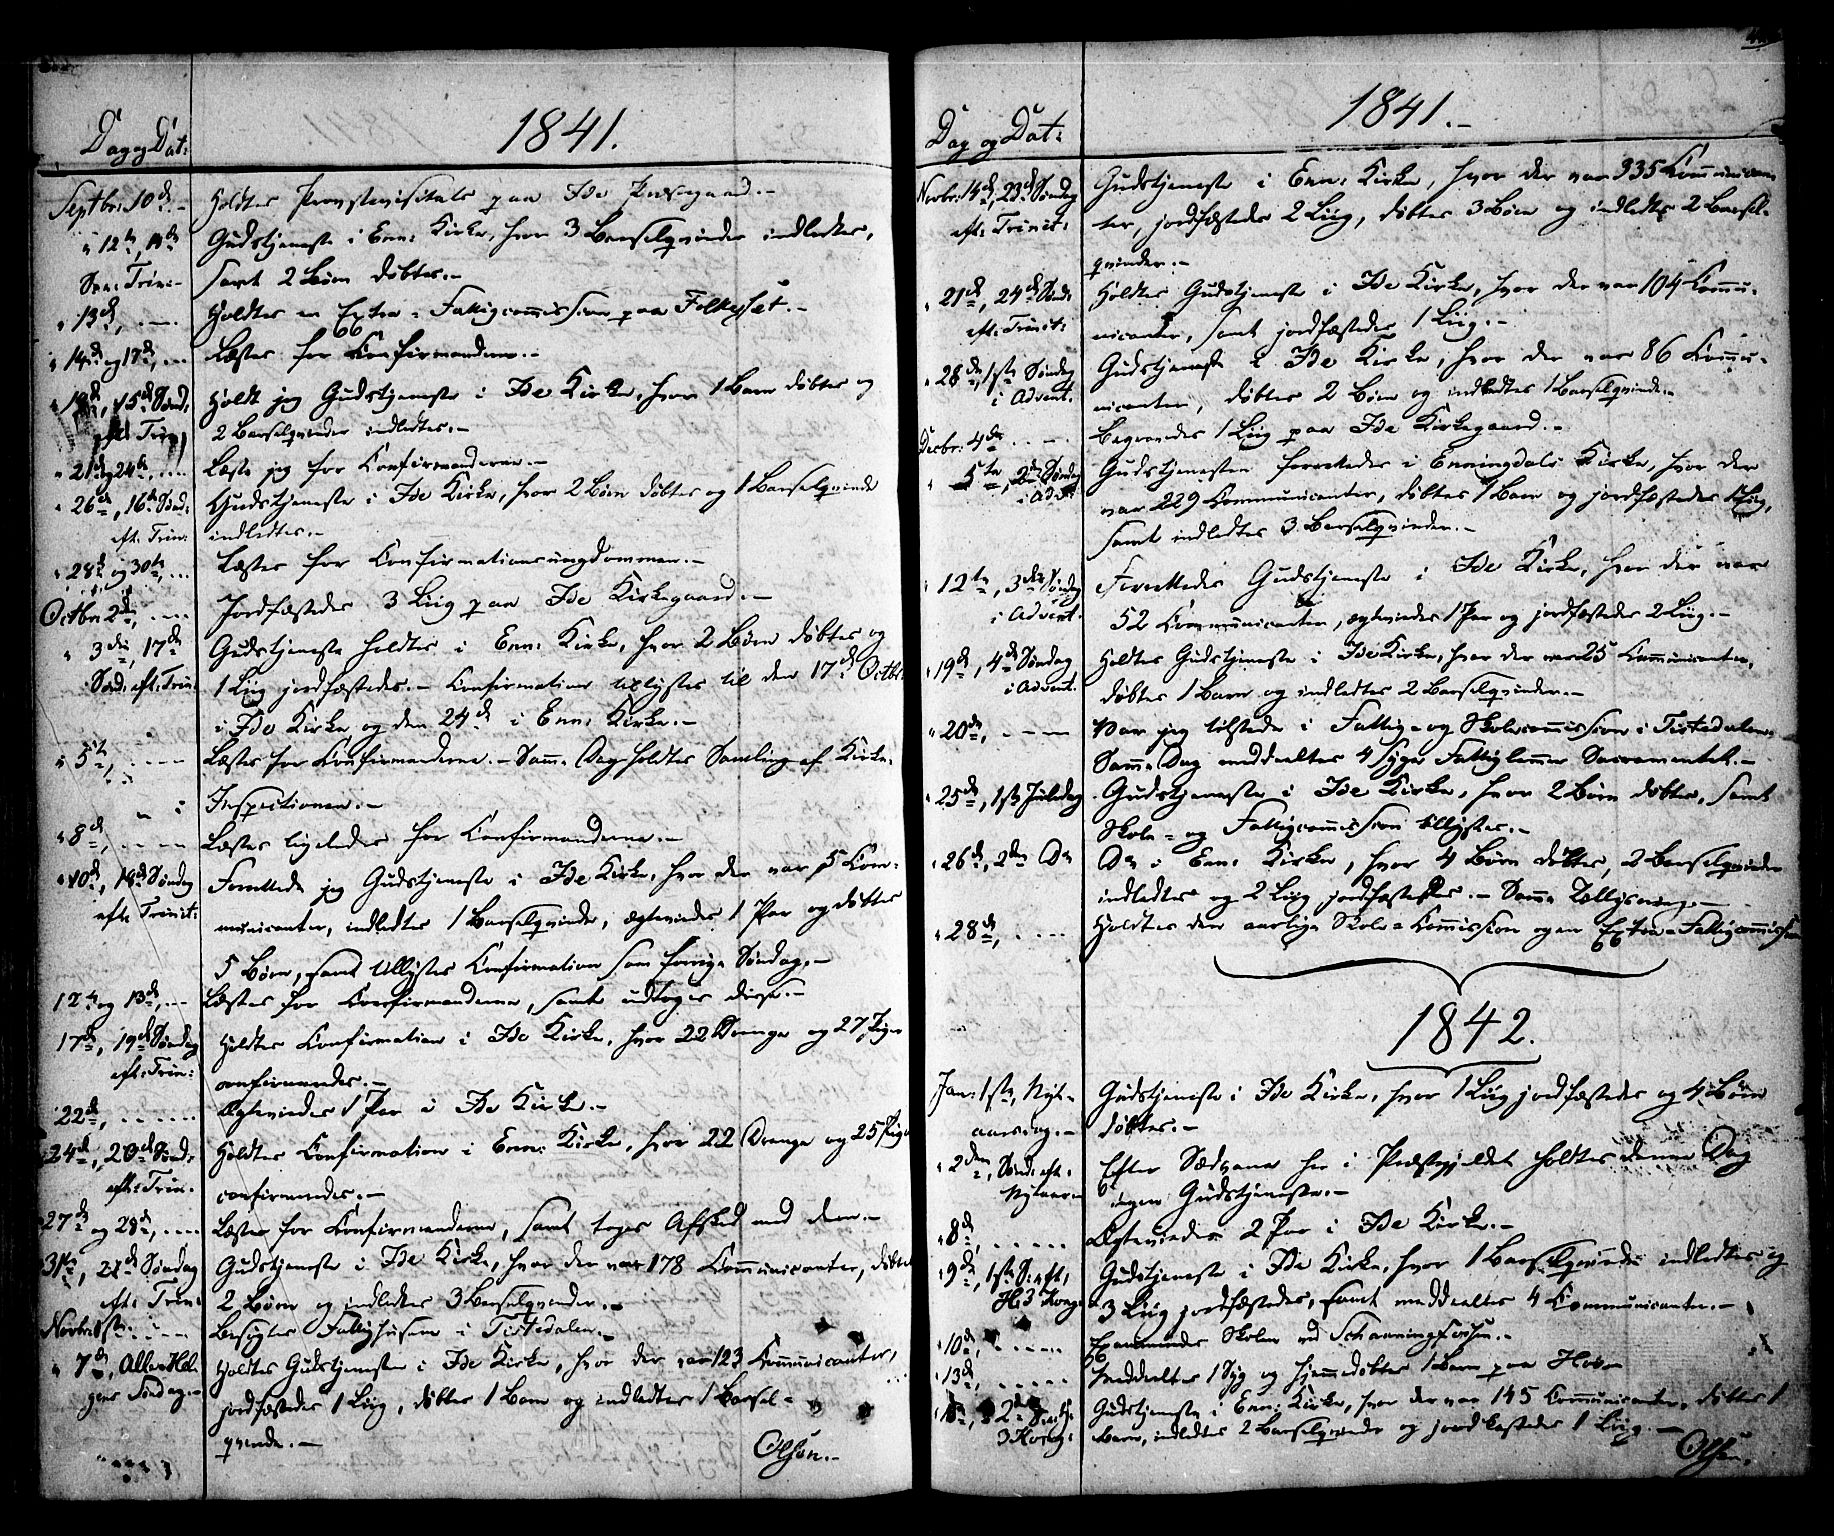 1841.
Dag og Dat:
Septbr: 10de - Holdtes Provstevisitats paa Ide Præstegaard.-
" 12te, 14de Gudstjeneste i Enn: Kirke, hvor 3 Barselqvinder indledtes,
Søn: Trin:- samt 2 Børn døbtes.-
" 13de, .-. Holdtes en Extra-Fattigcommission paa Folkesæt.-
" 14de og 17de, ... Læstes for Confirmanderne.-
" 19de, 15de Sønd: Holdt jeg Gudstjeneste i Ide Kirke, hvor 1 Barn døbtes og
eft: Trin: 2 Barselqvinder indledtes.-
" 21de og 24de .... Læste jeg for Confirmanderne.-
" 26de, 16de Sønd: Gudstjeneste i Ide Kirke, hvor 2 Børn døbtes og 1 Barselqvinde
eft. Trin: indledtes.-
" 28de og 30te, ... Læstes for Confirmationsungdommen.-
Octbr: 2den, .... Jordfæstedes 3 Liig paa Ide Kirkegaard.-
" 3die, 17de Gudstjeneste holdtes i Enn: Kirke, hvor 2 Børn døbtes og
Sønd: eft: Trin: 1 Liig jordfæstedes.- Confirmation tillystes til den 17de Octbr:
i Ide Kirke og den 24de i Enn: Kirke.-
" 5te, .... Læstes for Confirmanderne.- Samme Dag holdtes Samling af Kirke-
Inspectionen.-
" 8de, .... Læstes ligeledes for Confirmanderne.-
" 10de, 18de Søndag Forrettede jeg Gudstjeneste i Ide Kirke, hvor der var 5 Com-
eft: Trinit: municanter, indledtes 1 Barselqvinde, ægteviedes 1 Par og døbtes
5 Børn, samt tillystes Confirmation som forrige Søndag.-
12te og 13de, .. Læstes for Confirmanderne, samt udtoges disse.-
17de, 19de Søndag Holdtes Confirmation i Ide Kirke, hvor 22 Drenge og 27 Piger
eft: Trin: confirmeredes.-
22de, ..... Ægteviedes 1 Par i Ide Kirke.-
24de, 20de Sønd: Holdtes Confirmation i Enn: Kirke, hvor 22 Drenge og 25 Piger
eft: Trin. confirmeredes.-
27de og 28de, .... Læstes for Confirmanderne, samt toges Afsked med dem.-
31te, 21de Søndag Gudstjeneste i Ide Kirke, hvor der var 178 Communicanter, døbtes
eft: Trin: 2 Børn og indledtes 3 Barselqvinder.-
Novbr: 1ste .... Besøgtes Fattighusene i Tistedalen.-
" 7de, Alle Hel- Holdtes Gudstjeneste i Ide Kirke, hvor der var 123 Communicanter,
gens Søndag.- jordfæstedes 1 Liig, døbtes 1 Barn og indledtes 1 Barsel-
qvinde.-
Olsen.-
1841.-
Dag og Dat:
Novbr: 14de, 23de Søndag Gudstjeneste i Enn: Kirke, hvor der var 335 Communican-
eft: Trinit: ter, jordfæstedes 2 Liig, døbtes 3 Børn og indledtes 2 Barsel-
qvinder.-
" 21de, 24de Sønd: Holdtes Gudstjeneste i Ide Kirke, hvor der var 104 Commu-
eft: Trinit: nicanter, samt jordfæstedes 1 Liig.-
" 28de, 1ste Søndag Gudstjeneste i Ide Kirke, hvor der var 86 Commu-
i Advent. nicanter, døbtes 2 Børn og indledtes 1 Barselqvinde.-
Decbr: 4de .... Begravedes 1 Liig paa Ide Kirkegaard.-
" 5te, 2den Søndag Gudstjenesten forrettedes i Enningdals Kirke, hvor der
i Adv: var 229 Communicanter, døbtes 1 Barn og jordfæstedes 1 Liig,
samt indledtes 3 Barselqvinder.-
" 12te, 3die Søndag Forrettedes Gudstjeneste i Ide Kirke, hvor der var
i Advent. 52 Communicanter, ægteviedes 1 Par og jordfæstedes 2 Liig.-
" 19de, 4de Søndag Holdtes Gudstjeneste i Ide Kirke, hvor der var 25 Communicanter,
i Advent. døbtes 1 Barn og indledtes 2 Barselqvinder.-
" 20de, .... Var jeg tilstede i Fattig- og Skolecommission i Tistedalen.
Samme Dag meddeeltes 4 syge Fattiglemmer Sacramentet.-
" 25de, 1ste Juledag Gudstjeneste i Ide Kirke, hvor 2 Børn døbtes, samt
Skole- og Fattigcommission tillystes.-
" 26de, 2den Do Do i Enn: Kirke, hvor 4 Børn døbtes, 2 Barselqvinder
indledtes og 2 Liig jordfæstedes.- Samme Tillysning.-
" 28de, .... Holdtes den aarlige Skole-Commission og en Extra-Fattigcommission
1842.
Jan: 1ste, Nyt- Gudstjeneste i Ide Kirke, hvor 1 Liig jordfæstedes og 4 Børn
aarsdag.- døbtes.-
" 2den, Sønd: eft: Efter Sædvane her i Præstegjeldet holdtes denne Dag
Nytaar ingen Gudstjeneste.-
" 8de, ..... Ægteviedes 2 Par i Ide Kirke.-
" 9de, 1ste S: eft: Gudstjeneste i Ide Kirke, hvor 1 Barselqvinde indledtes og
H: 3 Kong: 3 Liig jordfæstedes, samt meddeeltes 4 Communicanter.-
" 10de, ..... Examineredes Skolen ved Schanningfossen.-
" 13de, ..... Meddeeltes 1 Syg og hjemmedøbtes 1 Barn paa Hov-
2den S: eft: Gudstjeneste i Enn: Kirke, hvor der var 145 Communicanter, døbtes 1
3 Kong: Barn, indledtes 2 Barselqvinder og jordfæstedes 1 Liig.-
Olsen.